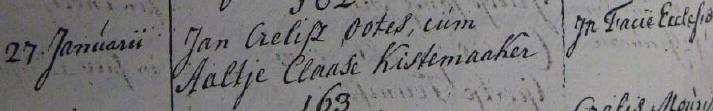 27. Januarii
Jan Crelisz Potes, cum
Aaltje Claasc Kistemaaker
In Facie Ecclesia
163